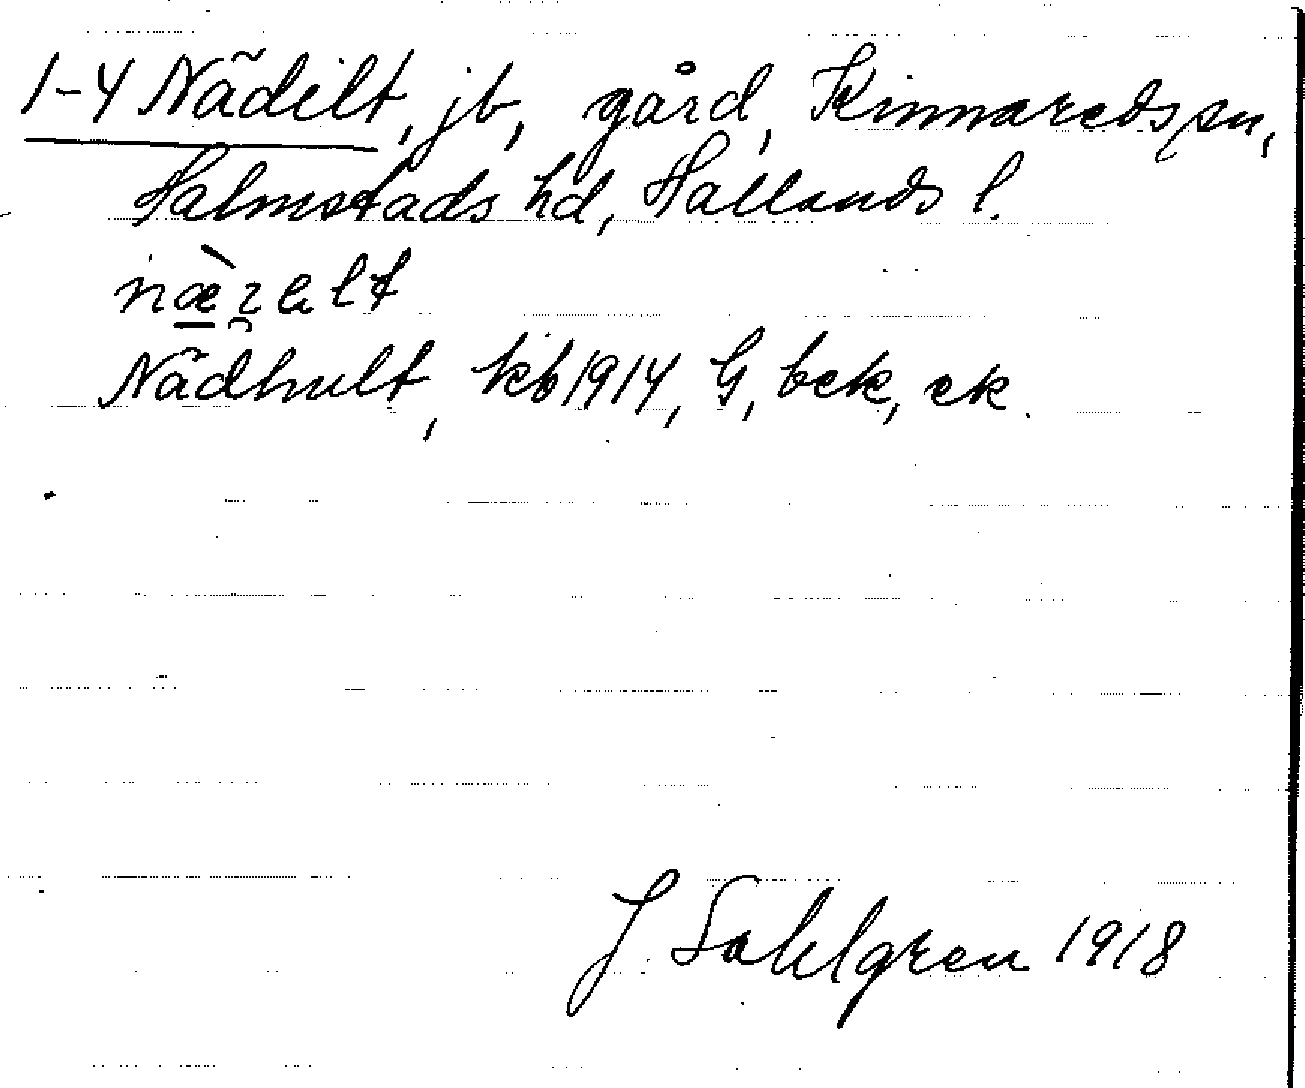 1-4 Nädilt, jb, gård, Kinnareds sn,
Halmstads hd, Hallands l.
næ̀relt
Nädhult, kb 1914, G, bek, ek.
J Sahlgren 1918